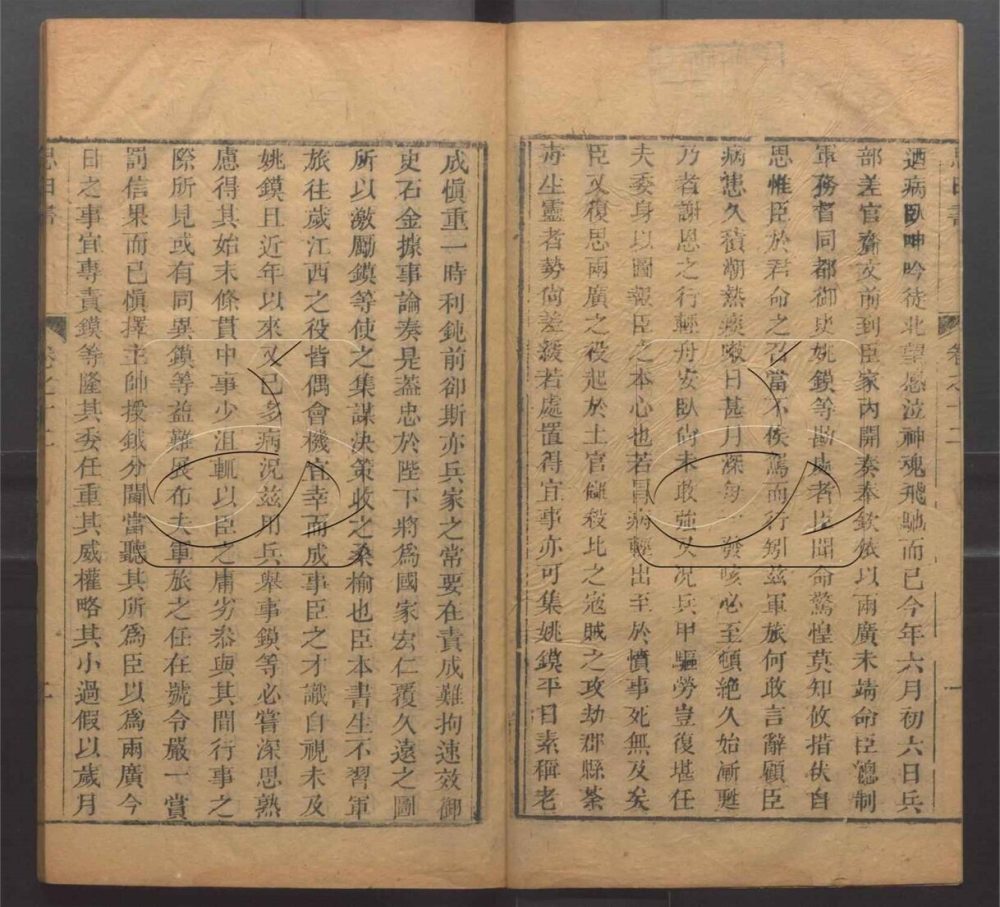 逎病臥呻吟徒北望感泣神魂飛馳而已今年六月初六日兵
部差官齎文前到臣家內開奏奉欽依以兩廣未靖命臣總制
軍務督同都御史姚鏌等勘處者臣聞命驚惶莫知攸措伏自
思惟臣於君命之召當不俟駕而行矧茲軍旅何敢言辭顧臣
病患久積潮熱痰嗽日甚月深每一發咳必至頓絶久始漸甦
乃者謝恩之行輕舟安臥尙未敢強又況兵甲驅勞豈復堪任
夫委身以圖報臣之本心也若冒病輕出至於僨事死無及矣
臣又復思兩廣之役起於土官讎殺比之寇賊之攻劫郡縣荼
毒生靈者勢尙差緩若處置得宜事亦可集姚鏌平日素稱老
成慎重一時利鈍前卻斯亦兵家之常要在責成難拘速效御
史石金據事論奏是蓋忠於陛下將爲國家宏仁覆久遠之圖
所以激勵鏌等使之集謀決策收之桑榆也臣本書生不習軍
旅往歲江西之役皆偶會機宜幸而成事臣之才識自視未及
姚鏌且近年以來又已多病況茲用兵舉事鏌等必嘗深思熟
慮得其始末條貫中事少沮輒以臣之庸劣參與其間行事之
際所見或有同異鏌等益難展布夫軍旅之任在號令嚴一賞
罰信果而已慎擇主帥授鉞分閫當聽其所爲臣以爲兩廣今
日之事宜專責鏌等隆其委任重其威權略其小過假以歲月
思田書 卷之十二